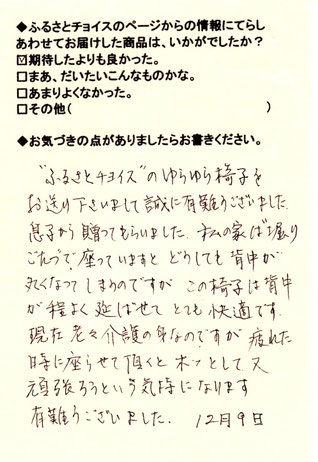 ◆ふるさとチョイスのページからの情報にてらし
あわせてお届けした商品は、いかがでしたか？
☑期待したよりも良かった。
□まあ、だいたいこんなものかな。
□あまりよくなかった。
□その他(　　　　　　　　　　　　　　)
◆お気づきの点がありましたらお書きください。
"ふるさとチョイス"のゆらゆら椅子を
お送り下さいまして誠に有難うございました.
息子から贈ってもらいました. 私の家は"堀り
ごたつで"座っていますと どうしても背中が
丸くなって しまうのですが この椅子は背中
が程よく延ばせて とても快適です.
現在 老々介護の身なのですが 疲れた
時に座らせて頂くと ホッとして又
頑張ろうという気持になります
有難うございました. 12月9日